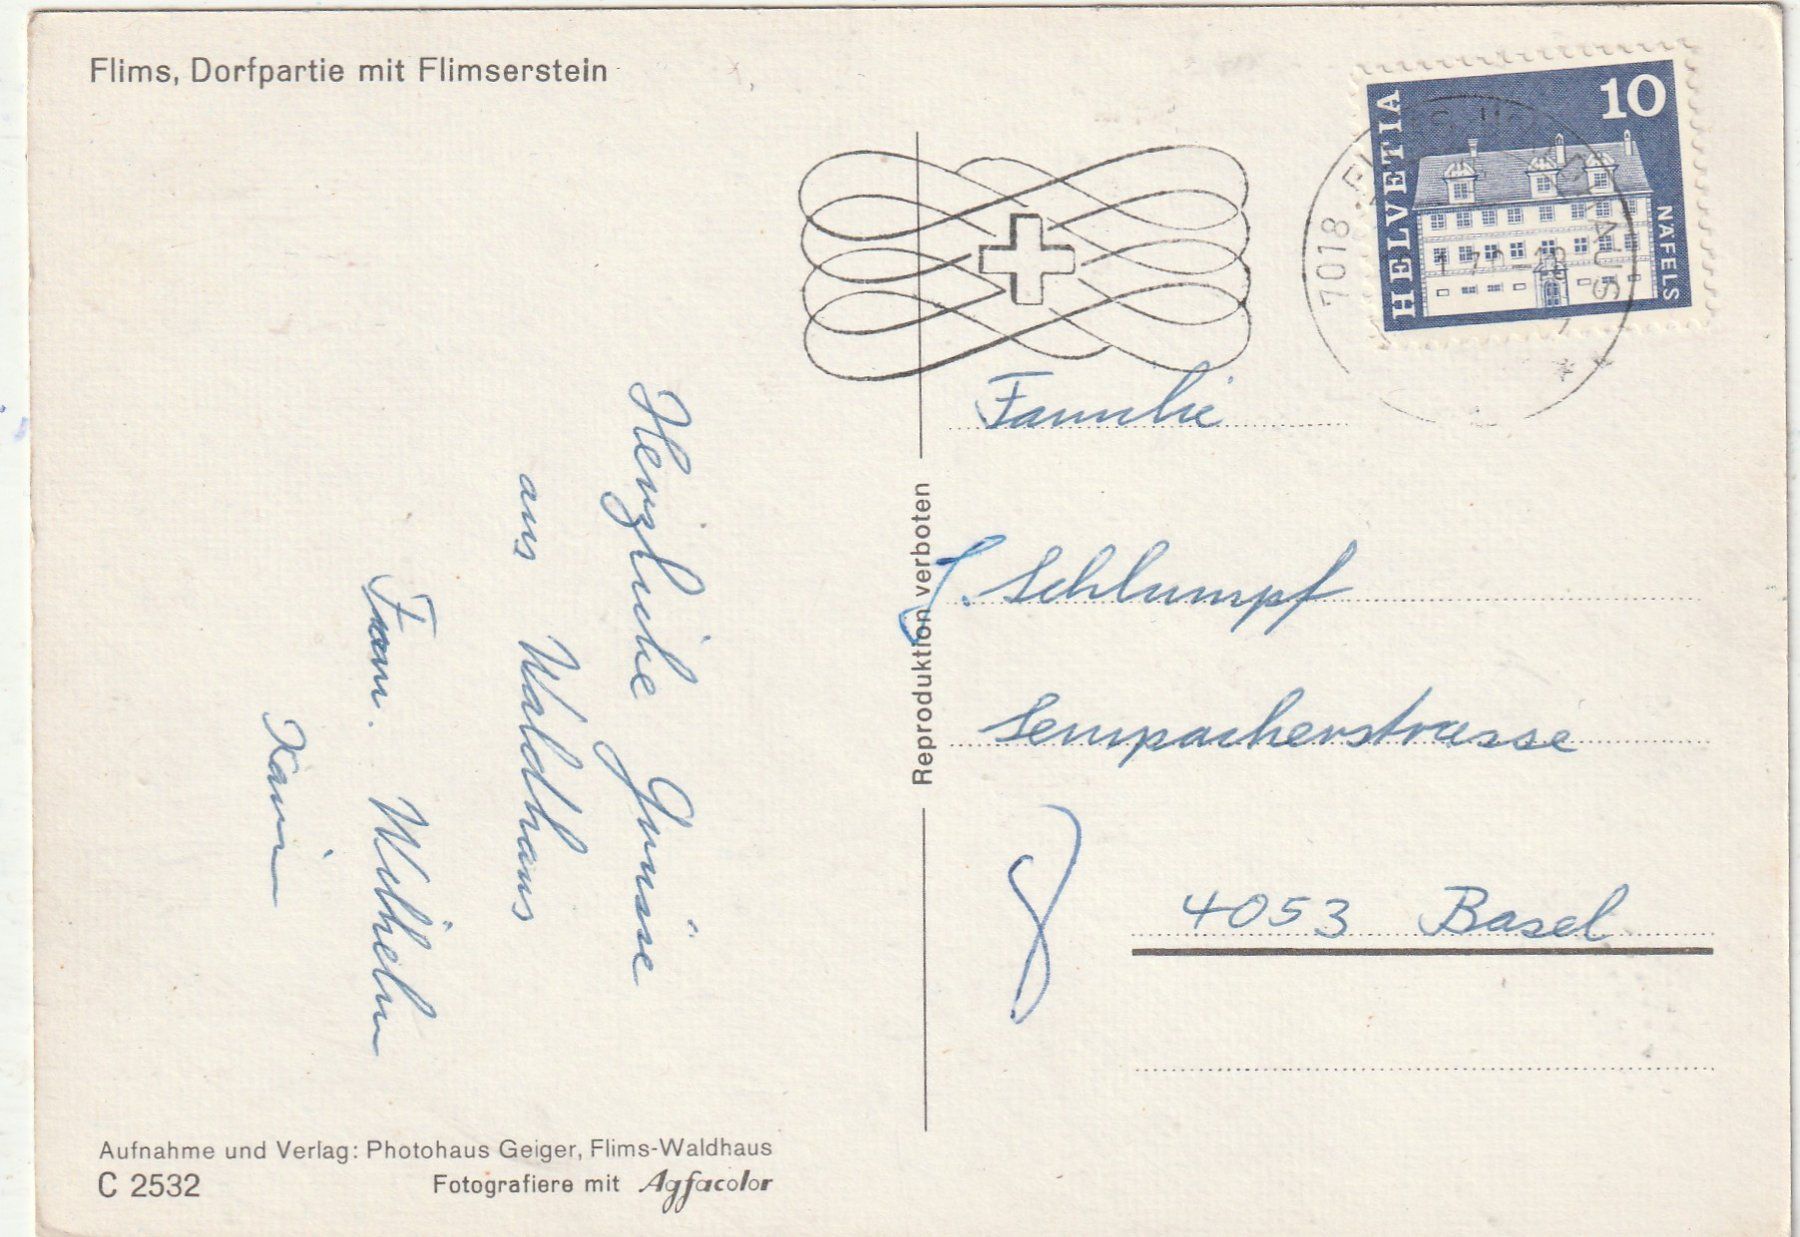 Flims, Dorfpartie mit Flimserstein
HELVETIA
10
NÄFELS
7018
Herzliche Grüsse
aus Waldhaus
Fam. Wilhelm
Karin
Reproduktion verboten
Familie
S. Schlumpf
Sempacherstrasse
4053 Basel
Aufnahme und Verlag: Photohaus Geiger, Flims-Waldhaus
C 2532
Fotografiere mit Agfacolor